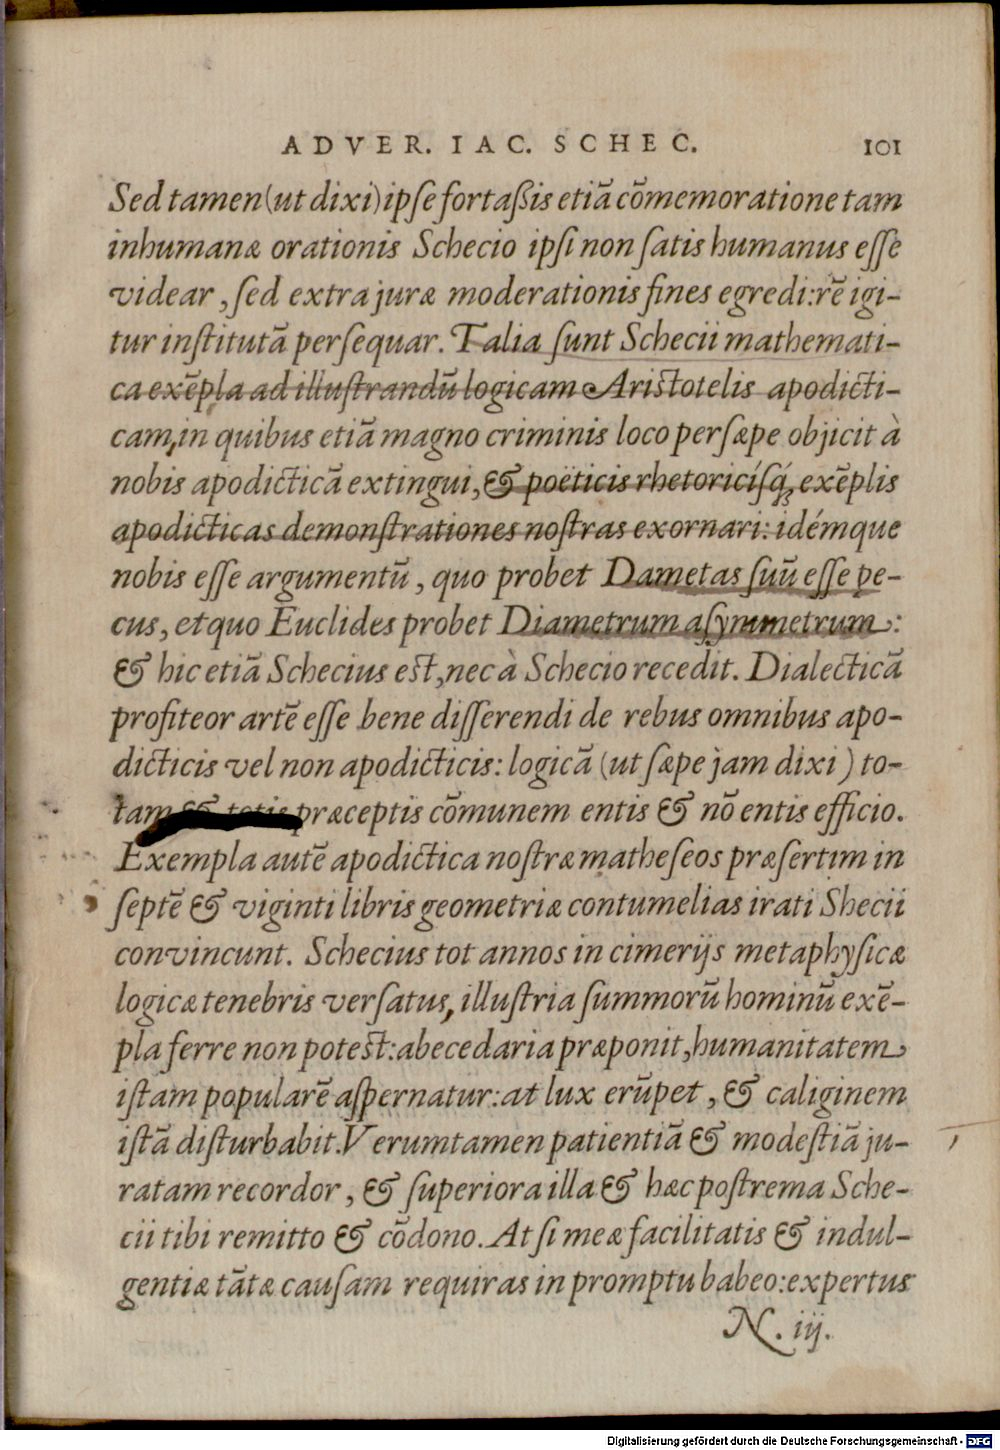 ADVER. IAC. SCHEC. 101
Sed tamen (ut dixi) ipse fortaßis etiā cōmemoratione tam
inhumanæ orationis Schecio ipsi non satis humanus esse
videar, sed extra juræ moderationis fines egredi: rē igi-
tur institutā persequar. Talia sunt Schecii mathemati-
ca exēpla ad illustrandū logicam Aristotelis apodicti-
cam, in quibus etiā magno criminis loco persæpe objicit à
nobis apodicticā extingui, & poëticis rhetoricísq́; exēplis
apodicticas demonstrationes nostras exornari: idémque
nobis esse argumentū, quo probet Dametas suū esse pe-
cus, et quo Euclides probet Diametrum asymmetrum:
& hic etiā Schecius est, nec à Schecio recedit. Dialecticā
profiteor artē esse bene disserendi de rebus omnibus apo-
dicticis vel non apodicticis: logicā (ut sæpe jam dixi) to-
tam & totis præceptis cōmunem entis & nō entis efficio.
Exempla autē apodictica nostræ matheseos præsertim in
septē & viginti libris geometriæ contumelias irati Shecii
convincunt. Schecius tot annos in cimerijs metaphysicæ
logicæ tenebris versatus, illustria summorū hominū exē-
pla ferre non potest: abecedaria præponit, humanitatem
istam popularē aspernatur: at lux erūpet, & caliginem
istā disturbabit. Verumtamen patientiā & modestiā ju-
ratam recordor, & superiora illa & hæc postrema Sche-
cii tibi remitto & cōdono. At si meæ facilitatis & indul-
gentiæ tātæ causam requiras in promptu habeo: expertus
N. iij.
Digitalisierung gefördert durch die Deutsche Forschungsgemeinschaft - DFG